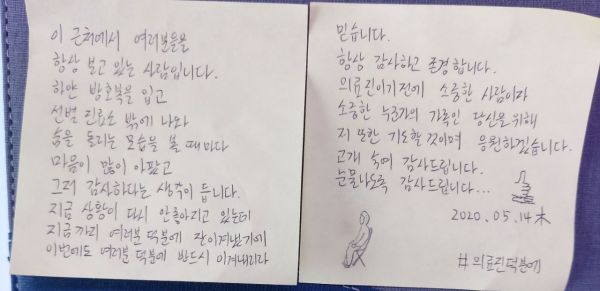 이 근처에서 여러분들을
항상 보고 있는 사람입니다.
하얀 방호복을 입고
선별 진료소 밖에 나와
숨을 돌리는 모습을 볼 때마다
마음이 많이 아팠고
그저 감사하다는 생각이 듭니다.
지금 상황이 다시 안좋아지고 있는데
지금까지 여러분 덕분에 잘이겨냈기에
이번에도 여러분 덕분에 반드시 이겨내리라
믿습니다.
항상 감사하고 존경합니다.
의료진이기전에 소중한 사람이자
소중한 누군가의 가족인 당신을 위해
저 또한 기도할 것이며 응원하겠습니다.
고개 숙여 감사드립니다.
눈물나도록 감사드립니다...
2020.05.14 木
#의료진덕분에